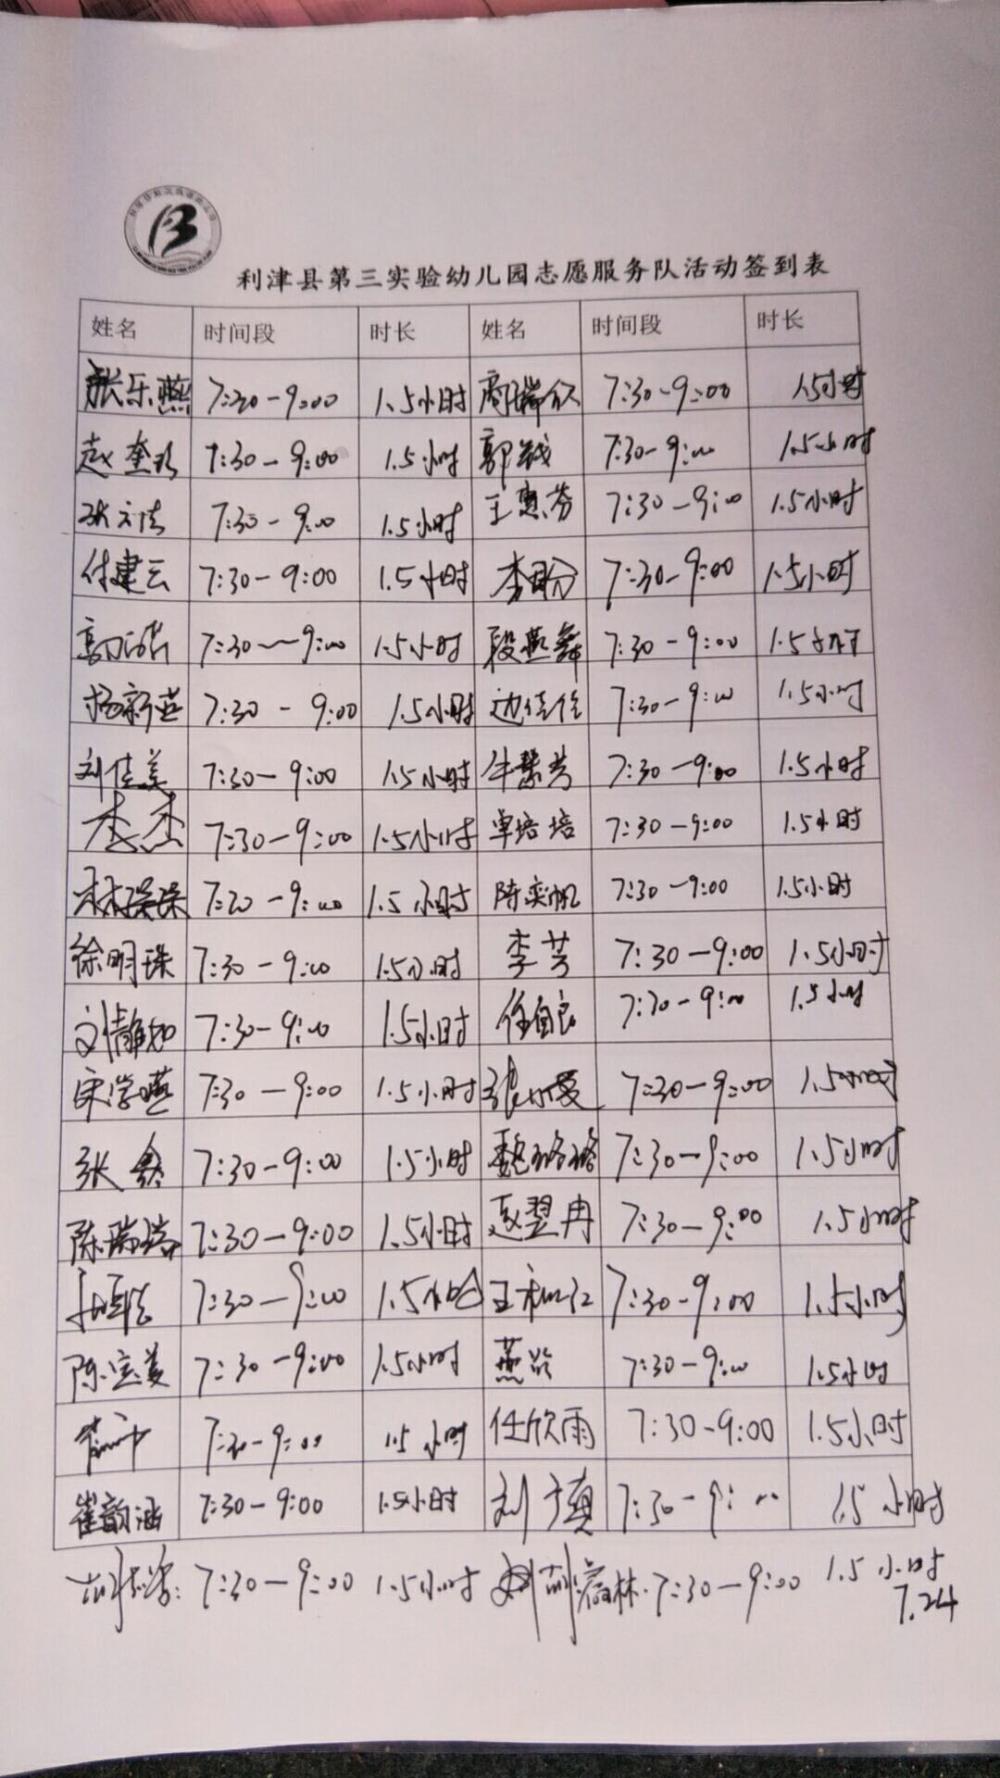 利津县第三实验幼儿园志愿服务队活动签到表
姓名 时间段 时长 姓名 时间段 时长
张乐燕 7:30-9:00 1.5小时 商瑞欣 7:30-9:00 1.5小时
赵奎 7:30-9:00 1.5小时 郭 7:30-9:00 1.5小时
张 7:30-9:00 1.5小时 王惠芬 7:30-9:00 1.5小时
付建云 7:30-9:00 1.5小时 李盼 7:30-9:00 1.5小时
高 7:30~9:00 1.5小时 段燕舞 7:30-9:00 1.5小时
杨新燕 7:30-9:00 1.5小时 边佳佳 7:30-9:00 1.5小时
刘佳美 7:30-9:00 1.5小时 牛 芳 7:30-9:00 1.5小时
李杰 7:30-9:00 1.5小时 卓培培 7:30-9:00 1.5小时
林琛琛 7:30-9:00 1.5小时 陈奕帆 7:30-9:00 1.5小时
徐明珠 7:30-9:00 1.5小时 李芳 7:30-9:00 1.5小时
刘 7:30-9:00 1.5小时 7:30-9:00 1.5小时
宋学燕 7:30-9:00 1.5小时 张 7:30-9:00 1.5小时
张鑫 7:30-9:00 1.5小时 魏珞珞 7:30-9:00 1.5小时
陈瑞瑞 7:30-9:00 1.5小时 赵翌冉 7:30-9:00 1.5小时
7:30-9:00 1.5小时 王 7:30-9:00 1.5小时
陈宝美 7:30-9:00 1.5小时 燕 7:30-9:00 1.5小时
7:30-9:00 1.5小时 任欣雨 7:30-9:00 1.5小时
崔韵涵 7:30-9:00 1.5小时 刘 7:30-9:00 1.5小时
胡 7:30-9:00 1.5小时 胡 林 7:30-9:00 1.5小时
7.24